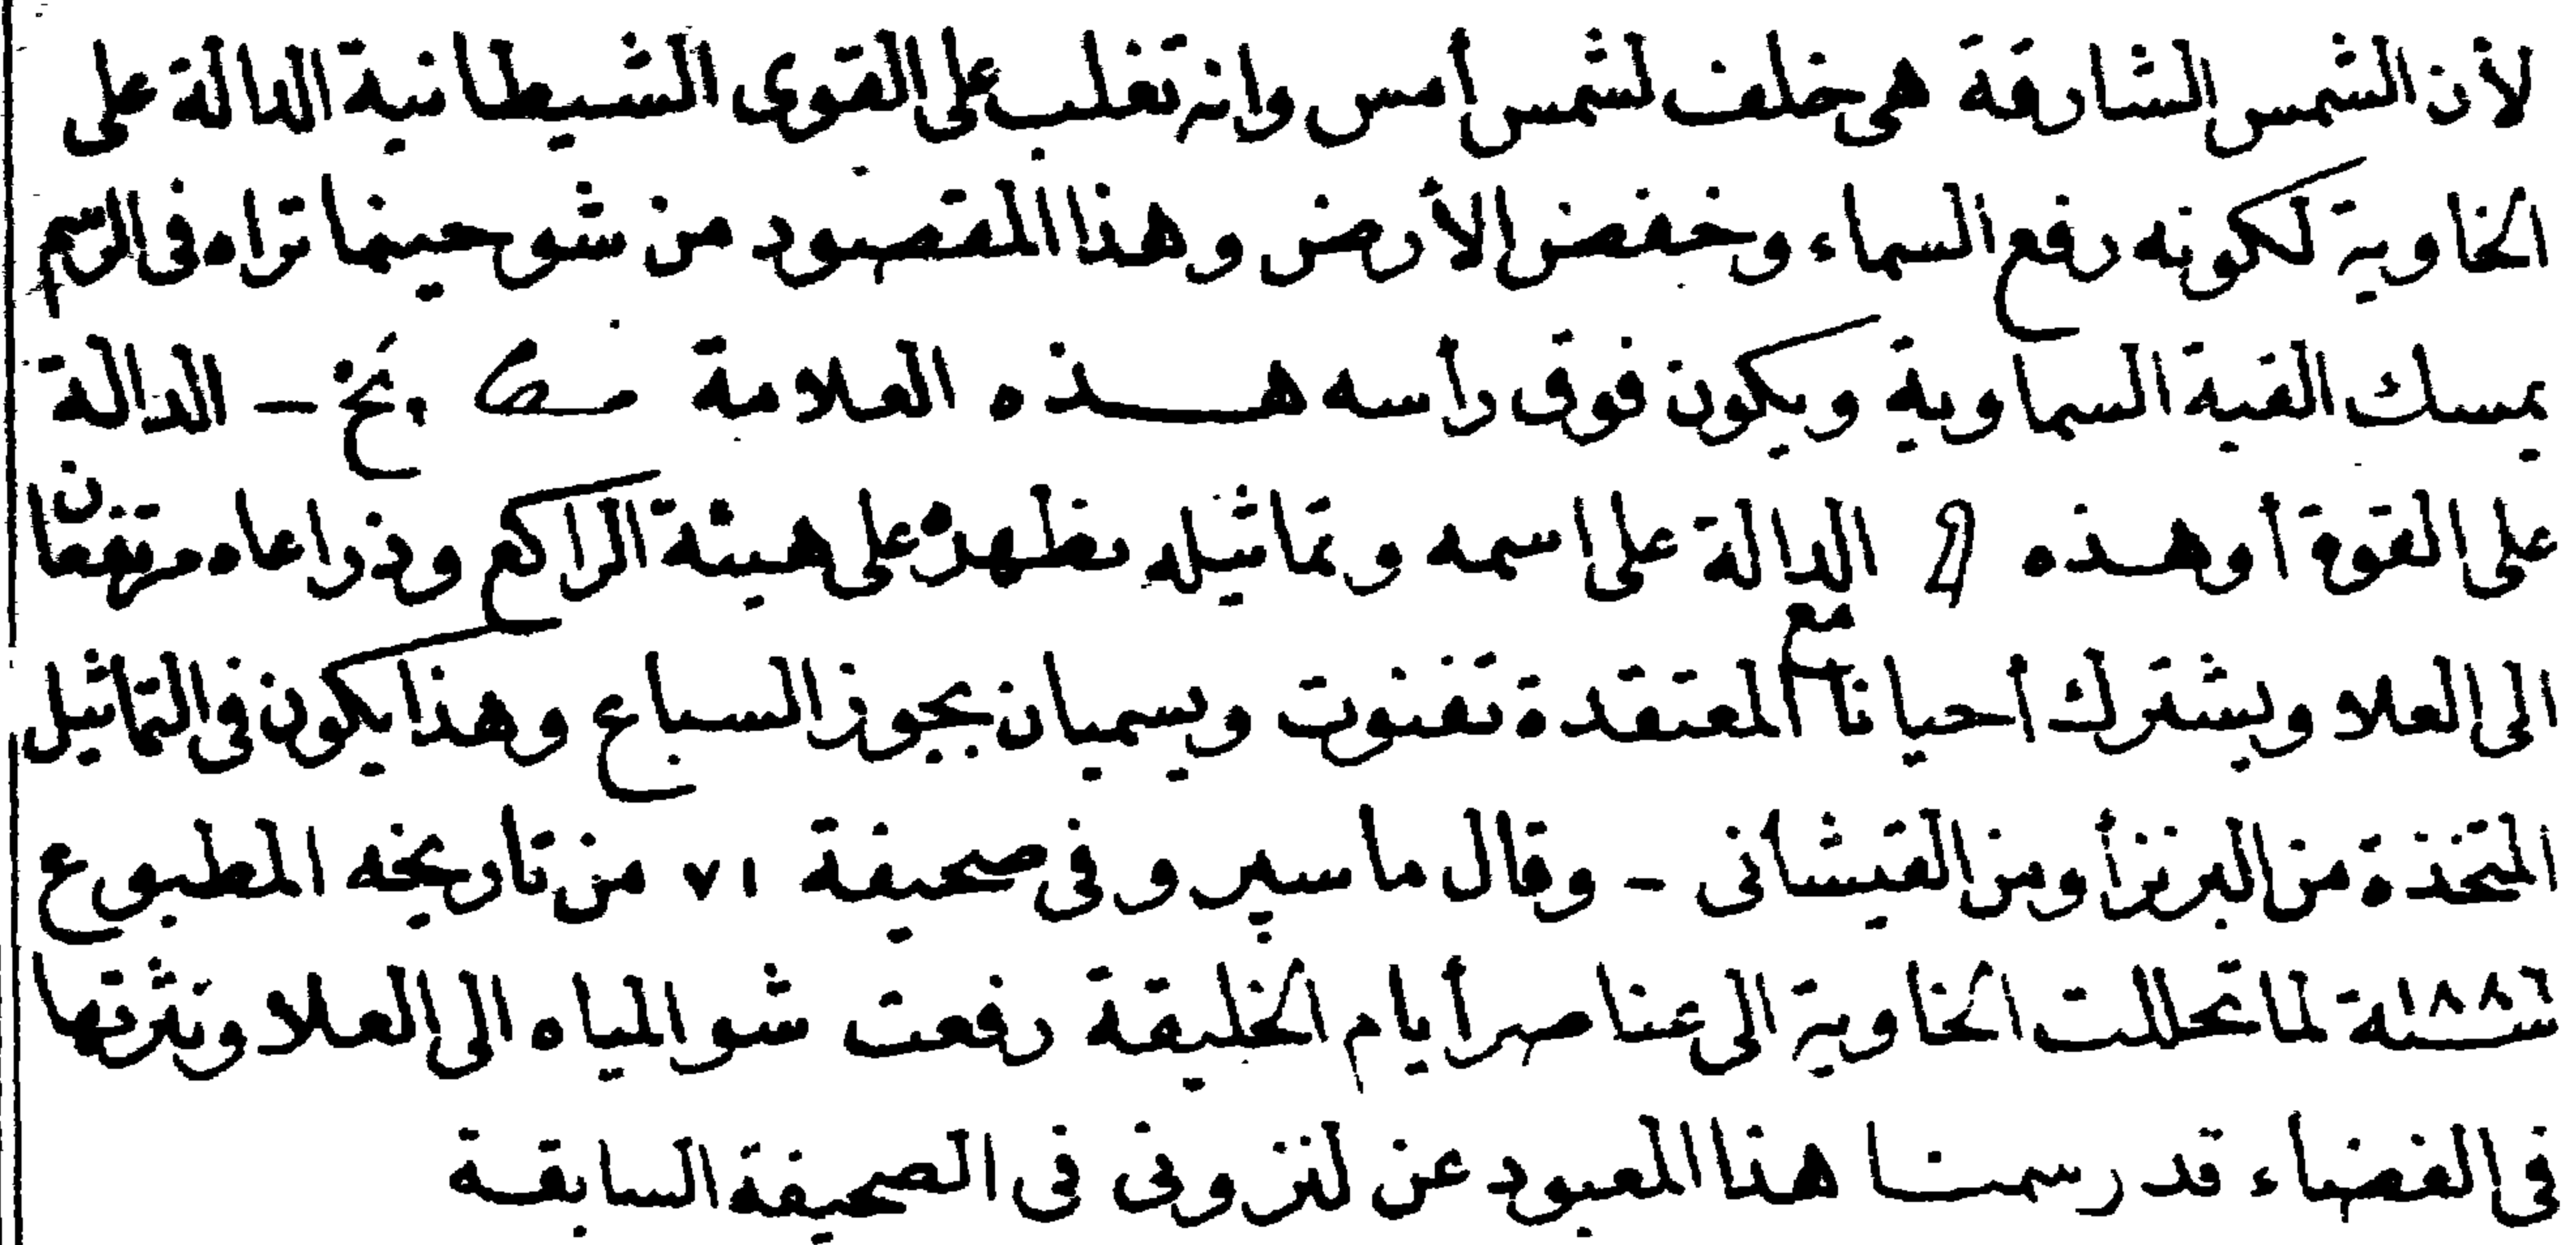 لأن الشمس الشارقة هى خلف لشمس أمس وانه تغلب على القوى الشيطانية الدالة على
الخاوية لكونه رفع السماء وخفض الأرض وهذا المقصود من شو حينما تراه فى الرسم
يمسك القبة السماوية ويكون فوق رأسه هذه العلامة پخ - الدالة
على القوة أو هذه الدالة على اسمه وتماثيله تظهره على هيئة الراكع وذراعاه مرتفعان
الى العلا ويشترك أحيانا مع المعتقدة تفنوت ويسميان بجوز السباع وهذا يكون فى التماثيل
المتخذة من البرنز أو من القيشانى - وقال ماسپرو فى صحيفة ٧١ من تاريخه المطبوع
سنة ١٨٨٦ لما تحللت الخاوية الى عناصر أيام الخليقة رفعت شو المياه الى العلا ونثرتها
فى الفضاء قد رسمنا هذا المعبود عن لنزونى فى الصحيفة السابقة